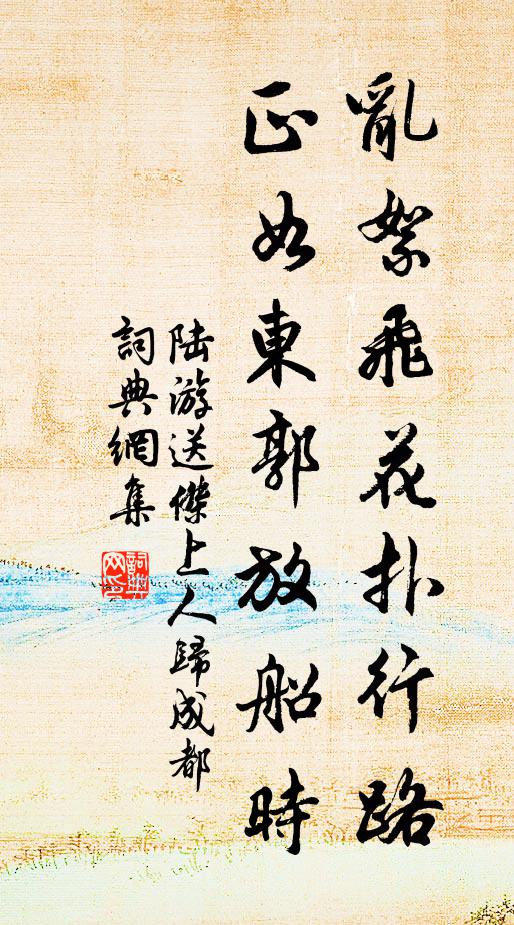 亂絮飛花扑行路
正如東郭放船時
陸游送傑上人歸成都
詞典網集